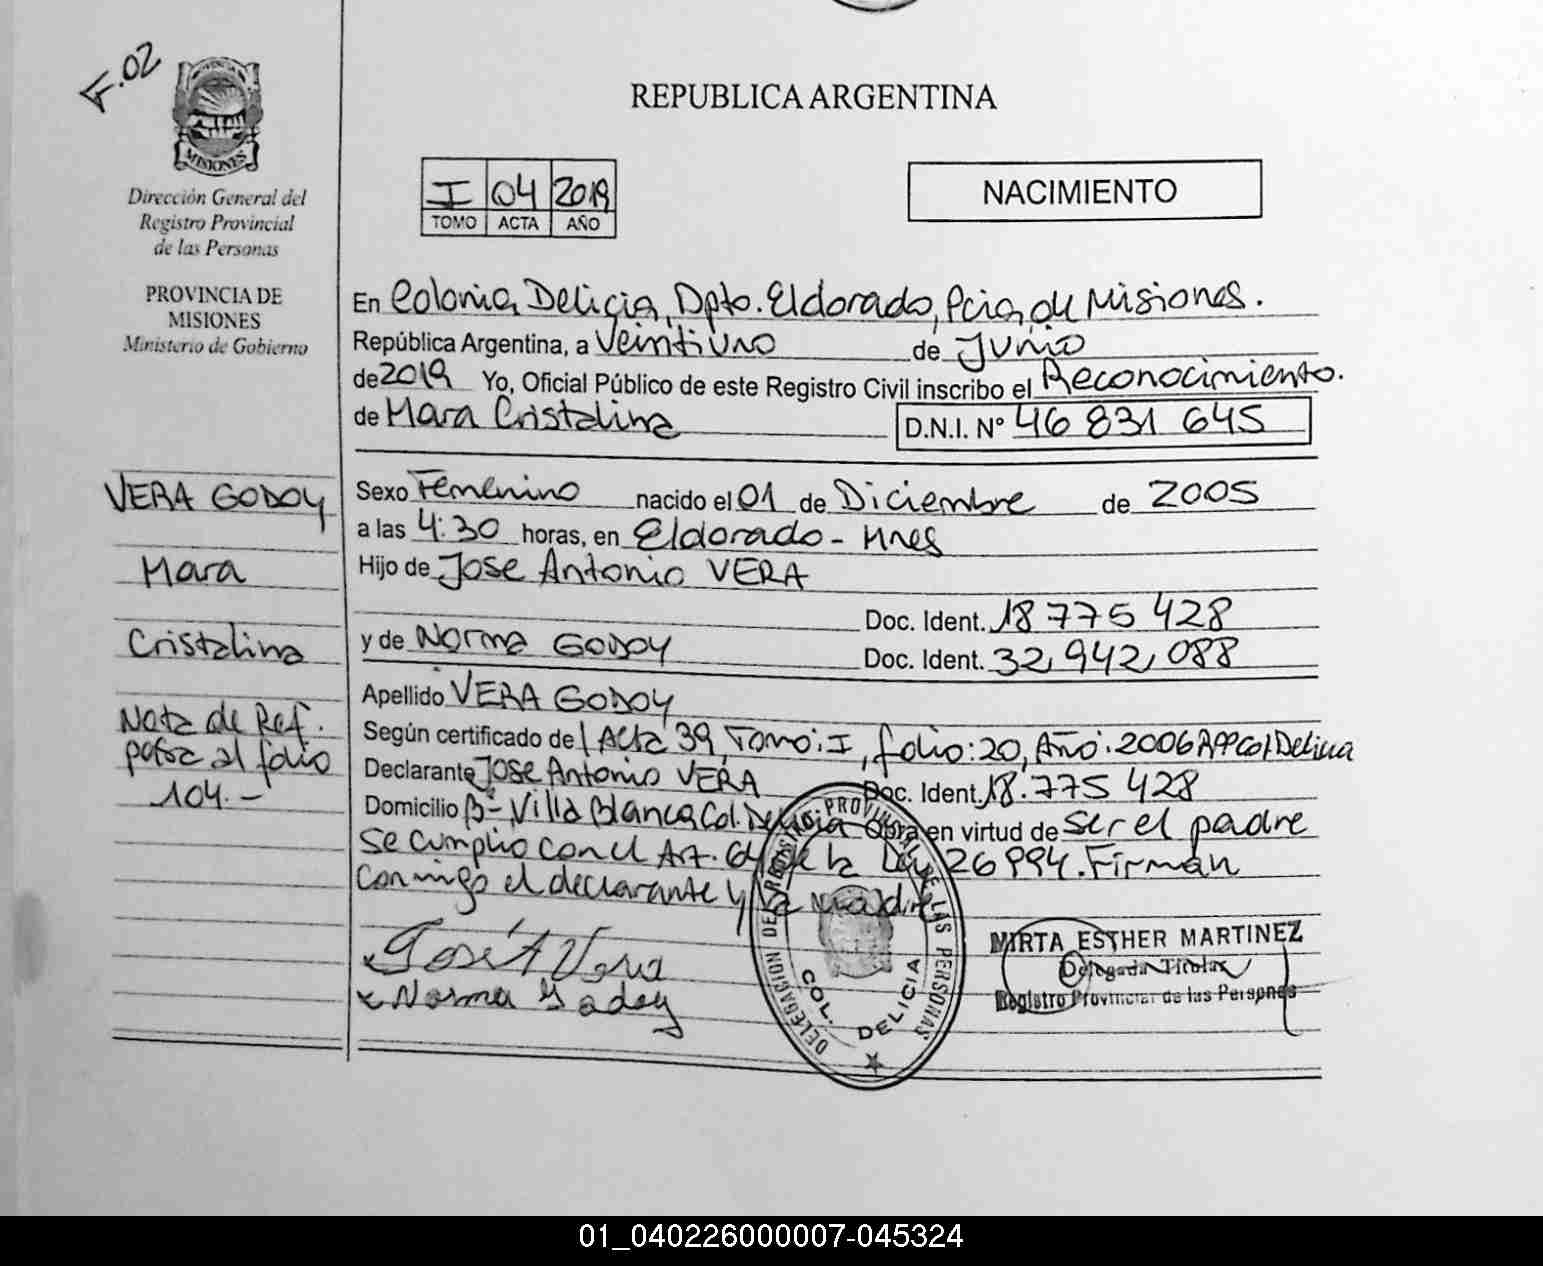 F.02
MISIONES
Dirección General del
Registro Provincial
de las Personas
PROVINCIA DE
MISIONES
Ministerio de Gobierno
REPUBLICA ARGENTINA
I 04 2019
TOMO ACTA AÑO
NACIMIENTO
En Colonia Delicia, Dpto. Eldorado, Pcia, de Misiones.
República Argentina, a Veintiuno de Junio
de 2019 Yo, Oficial Público de este Registro Civil inscribo el Reconocimiento.
de Mara Cristalina D.N.I. N° 46 831 645
VERA GODOY
Mara
Cristalina
Nota de Ref.
pasa al folio
104.-
Sexo Femenino nacido el 01 de Diciembre de 2005
a las 4:30 horas, en Eldorado - Mnes
Hijo de Jose Antonio VERA
Doc. Ident. 18 775 428
y de Norma GODOY Doc. Ident. 32,942,088
Apellido VERA GODOY
Según certificado de Acta 39, Tomo: I, folio: 20, Año: 2006 RPP Col Delicia
Declarante Jose Antonio VERA Doc. Ident. 18.775 428
Domicilio Bº Villa Blanca Col. Delicia Obra en virtud de ser el padre
Se cumplio con el Art. 64 de la Ley 26994. Firman
conmigo el declarante y la madre
x José A Vera
x Norma Godoy
DELEGACION DE REGISTRO PROVINCIAL DE LAS PERSONAS
COL. DELICIA
MIRTA ESTHER MARTINEZ
Delegada Titular
Registro Provincial de las Personas
01_040226000007-045324